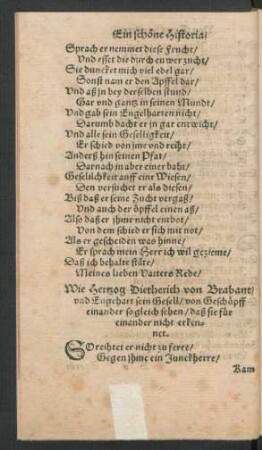 Ein schöne Historia/
Sprach er nemmet diese Frucht/
Vnd esset die durch euwer zucht/
Sie duncket mich viel edel gar/
Sonst nam er den Apffel dar/
Vnd aß in bey derselben stund/
Gar vnd gantz in seinen Mundt/
Vnd gab sein Engelharten nicht/
Darumb dacht er in gar entwicht/
Vnd alle sein Geselligkeit/
Er schied von jme vnd reiht
Anderß hin seinen Pfat/
Darnach in aber einer baht/
Geselilchkeit auff eine Wiesen/
Den versuchet er als diesen/
Biß daß er seine Zucht vergaß/
Vnd auch der öpffel einen aß/
Also daß er jhme nicht entbot/
Von dem schied er sich mit not/
Als er gescheiden was hinne/
Er sprach mein Herr ich wil gezieme/
Daß ich behalte stäte/
Meines lieben Vatters Rede/
Wie Hertzog Dietherich von Brabant/
vnd Engehart sein Gesell/ von Geschöpff
einander so gleich sehen/ daß sie für
einander nicht erken-
net.
SO reihtet er nicht zu ferre/
Gegen jhme ein Junckherre/
Kam